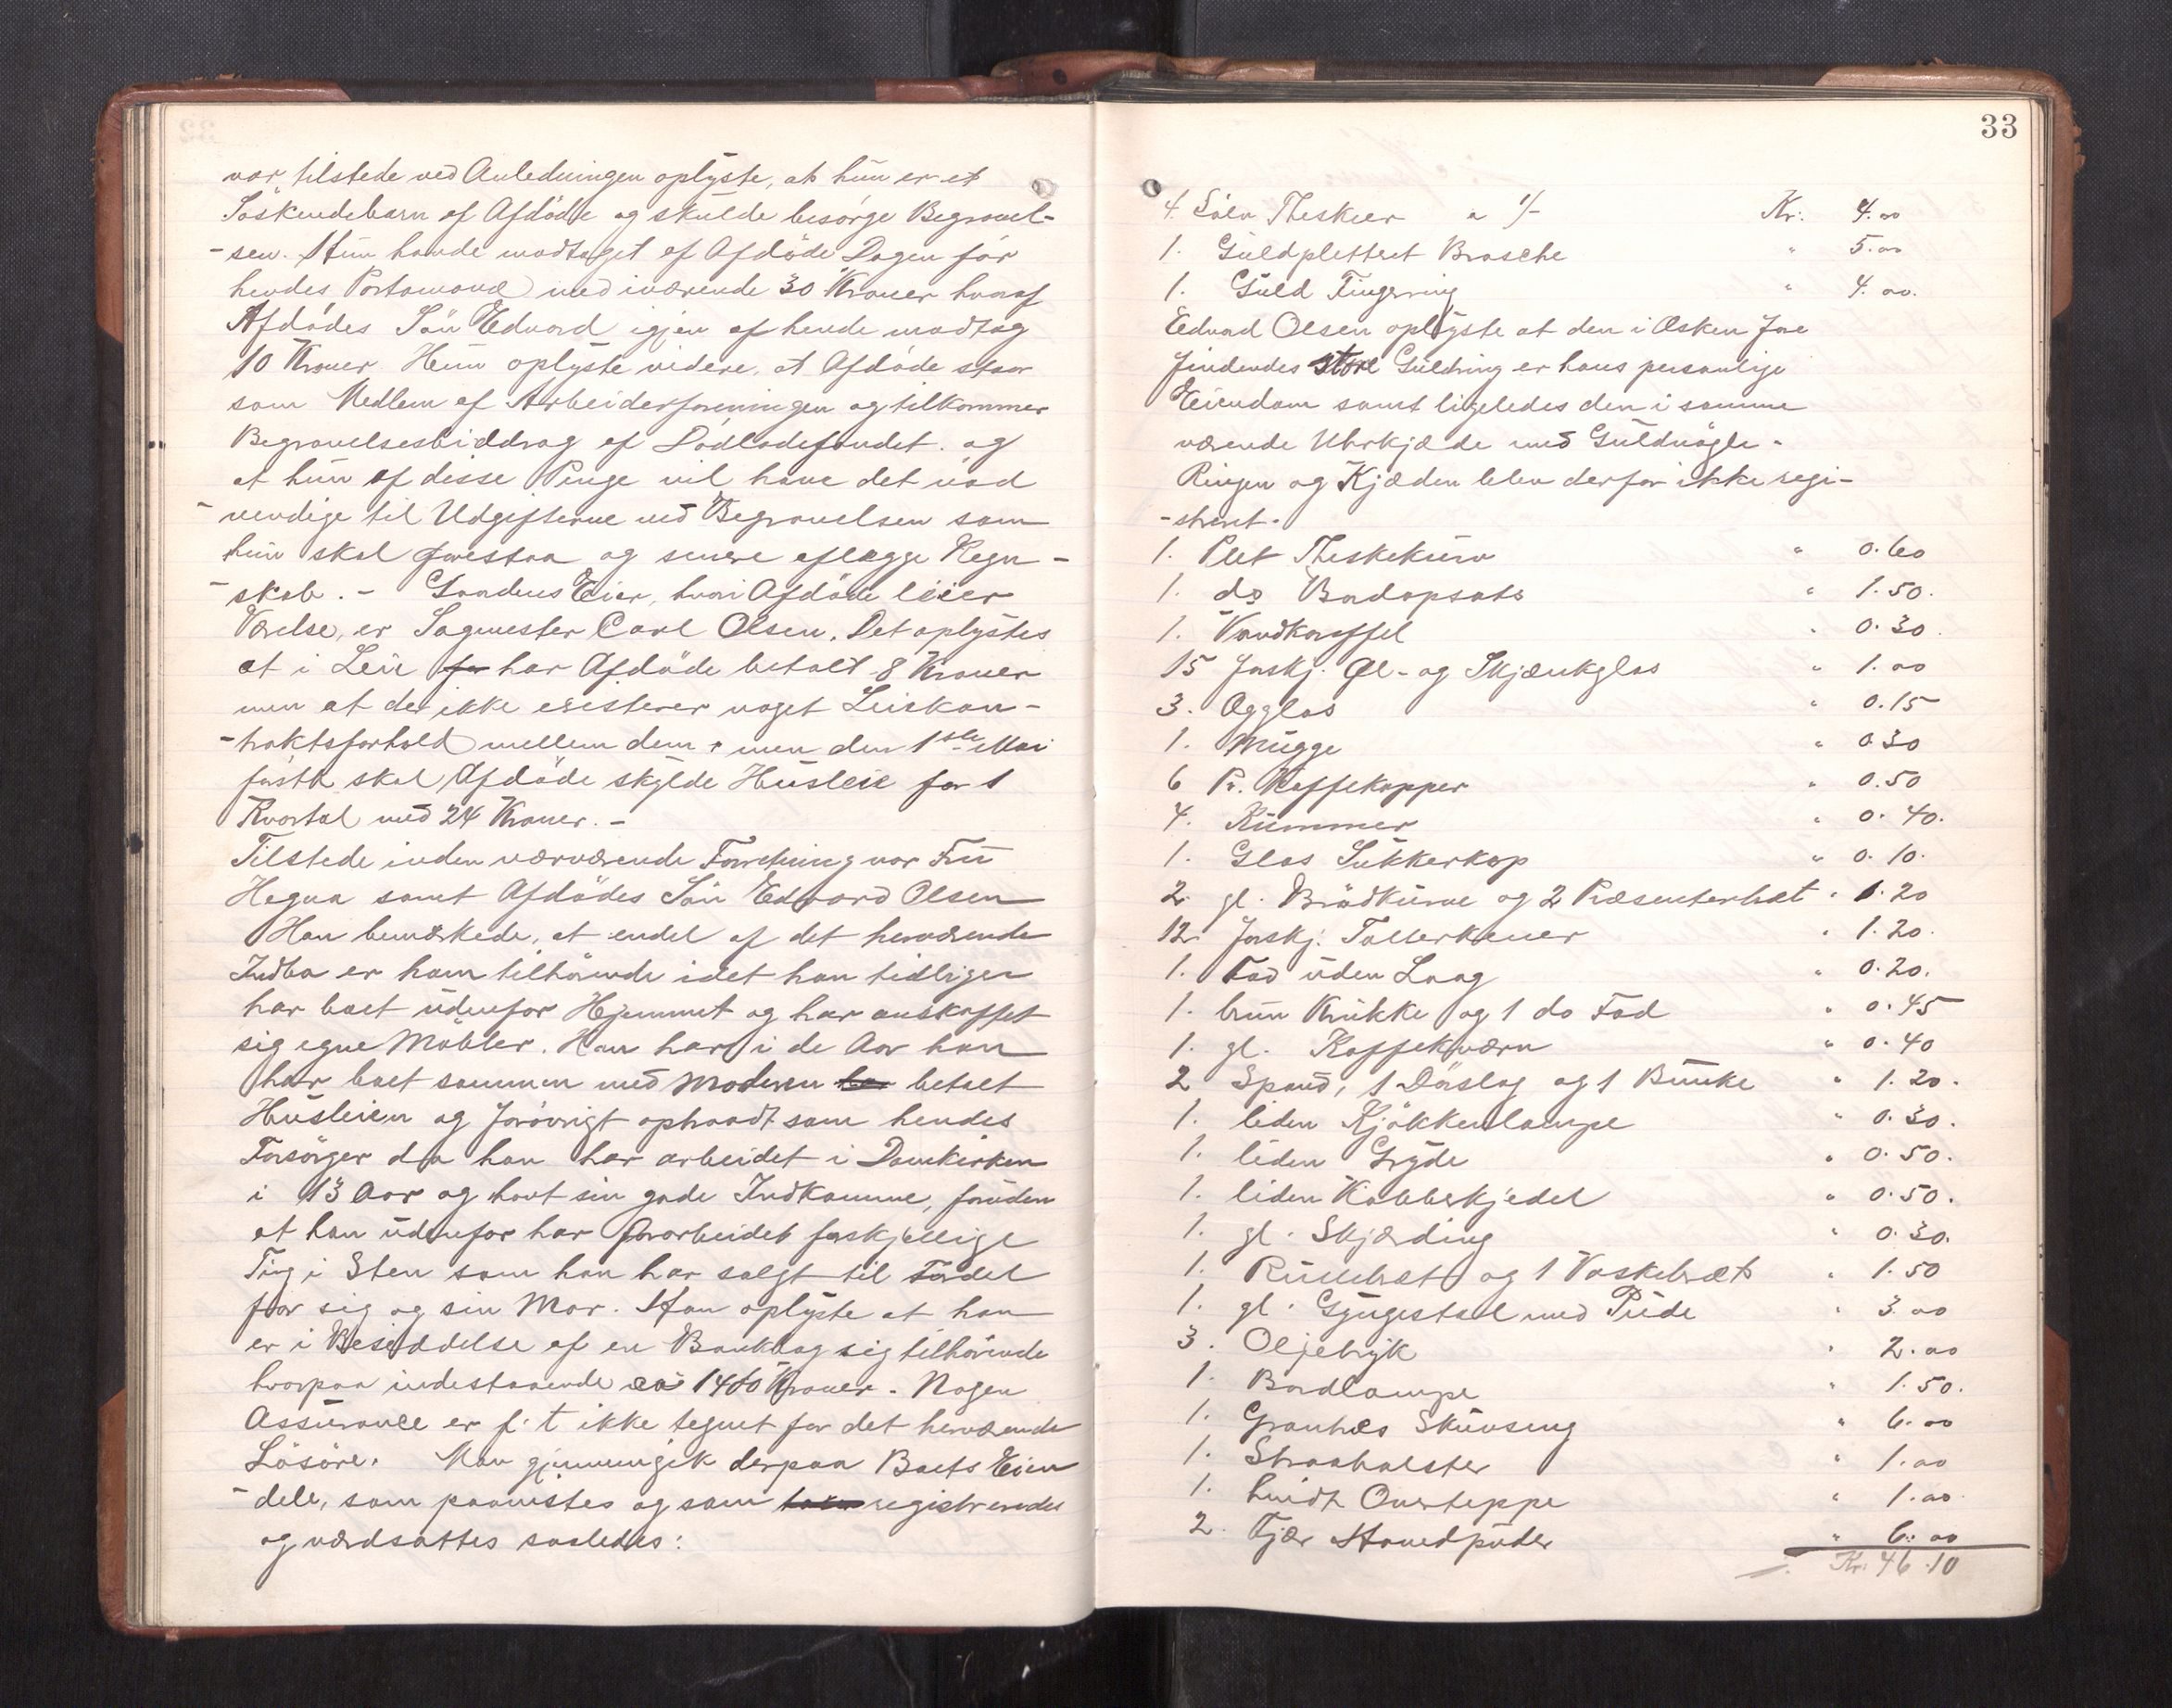 var tilstede ved Anledningen oplyste, at hun er et
Søskendebarn af Afdöde og skulde besörge Begravel-
-sen. Hun havde modtaget af Afdöde Dagen för
hendes Portamonnæ med iværende 30 Kroner hvoraf
Afdödes Sön Edvard igjen af hende modtog
10 Kroner. Hun oplyste videre, at Afdöde staar
som Medlem af Arbeiderforeningen og tilkommer
Begravelsesbiddrag af Dödladefondet. og
at hun af disse Penge vil have det nöd
-vendige til Udgifterne ved Begravelsen som
hun skal forestaa og senere aflægge Regn-
-skab. - Gaardens Eier, hvori Afdöde leier
Værelse, er Sagmester Carl Olsen. Det oplystes
at i Leie har Afdöde betalt 8 Kroner
men at der ikke existerer noget Leiekon-
-traktsforhold mellem dem, men den 1ste Mai
förstk. skal Afdöde skylde Husleie for 1
Kvartal med 24 Kroner. -
Tilstede under nærværende Forretning var Fru
Hegna samt Afdödes Sön Edvard Olsen
Han bemærkede, at endel af det herværende
Indbo er ham tilhörende idet han tidligere
har boet udenfor Hjemmet og har anskaffet
sig egne Möbler. Han har i de Aar han
har boet sammen med Moderen betalt
Husleien og forövrigt optraadt som hendes
Forsörger da han har arbeidet i Domkirken
i 13 Aar og havt sin gode Indkomme, foruden
at han udenfor har forarbeidet forskjellige
Ting i Sten som han har solgt til Fordel
for sig og sin Mor. Han oplyste at han
er i Besiddelse af en Bankbog sig tilhörende
hvorpaa indestaaende ca 1400 Kroner. Nogen
Assurance er f. t ikke tegnet for det herværende
Lösöre. Man gjennemgik derpaa Boets Eien
-dele, som paavistes og som registreredes
og værdsattes saaledes:
33
4. Sölv Theskeer a 1/- Kr: 4.00
1. Guldplettert Brosche " 5.00
1. Guld Fingerring " 4.00.
Edvard Olsen oplyste at den i Æsken fore
findendes store Guldring er hans personlige
Eiendom samt ligeledes den i samme
værende Uhrkjæde med Guldnögle.
Ringen og Kjæden blev derfor ikke regi-
-streret.
1. Plet Theskekurv " 0.60
1. do Bordopsats " 1.50.
1. Vandkaraffel " 0.30.
15 forskj. Øl- og Skjænkglas " 1.00
3. Ægglas " 0.15
1. Mugge " 0.30
6 Pr. Kaffekopper " 0.50
4. Kummer " 0.40.
1. Glas Sukkerkop " 0.10.
2. gl. Brödkurve og 2 Præsenterbræt " 1.20
12. forskj. Tallerkener " 1.20.
1. Fad uden Laag " 0.20.
1. brun Krukke og 1 do Fad " 0.45
1. gl. Kaffekværn " 0.40
2 Spand, 1 Dörslag og 1 Bunke " 1.20.
1. liden Kjökkenlampe " 0.30.
1. liden Gryde " 0.50.
1. liden Kobberkjedel " 0.50.
1. gl. Skjærding " 0.30.
1. Rullebræt og 1 Vaskebræt " 1.50
1. gl. Gyngestol med Pude " 3.00
3. Oljetryk " 2.00
1. Bordlampe " 1.50.
1. Grantræs Skuvseng " 6.00
1. Straabolster " 1.00
1. hvidt Overteppe " 1.00.
2. Fjær Hovedpuder " 6.00
Kr: 46.10